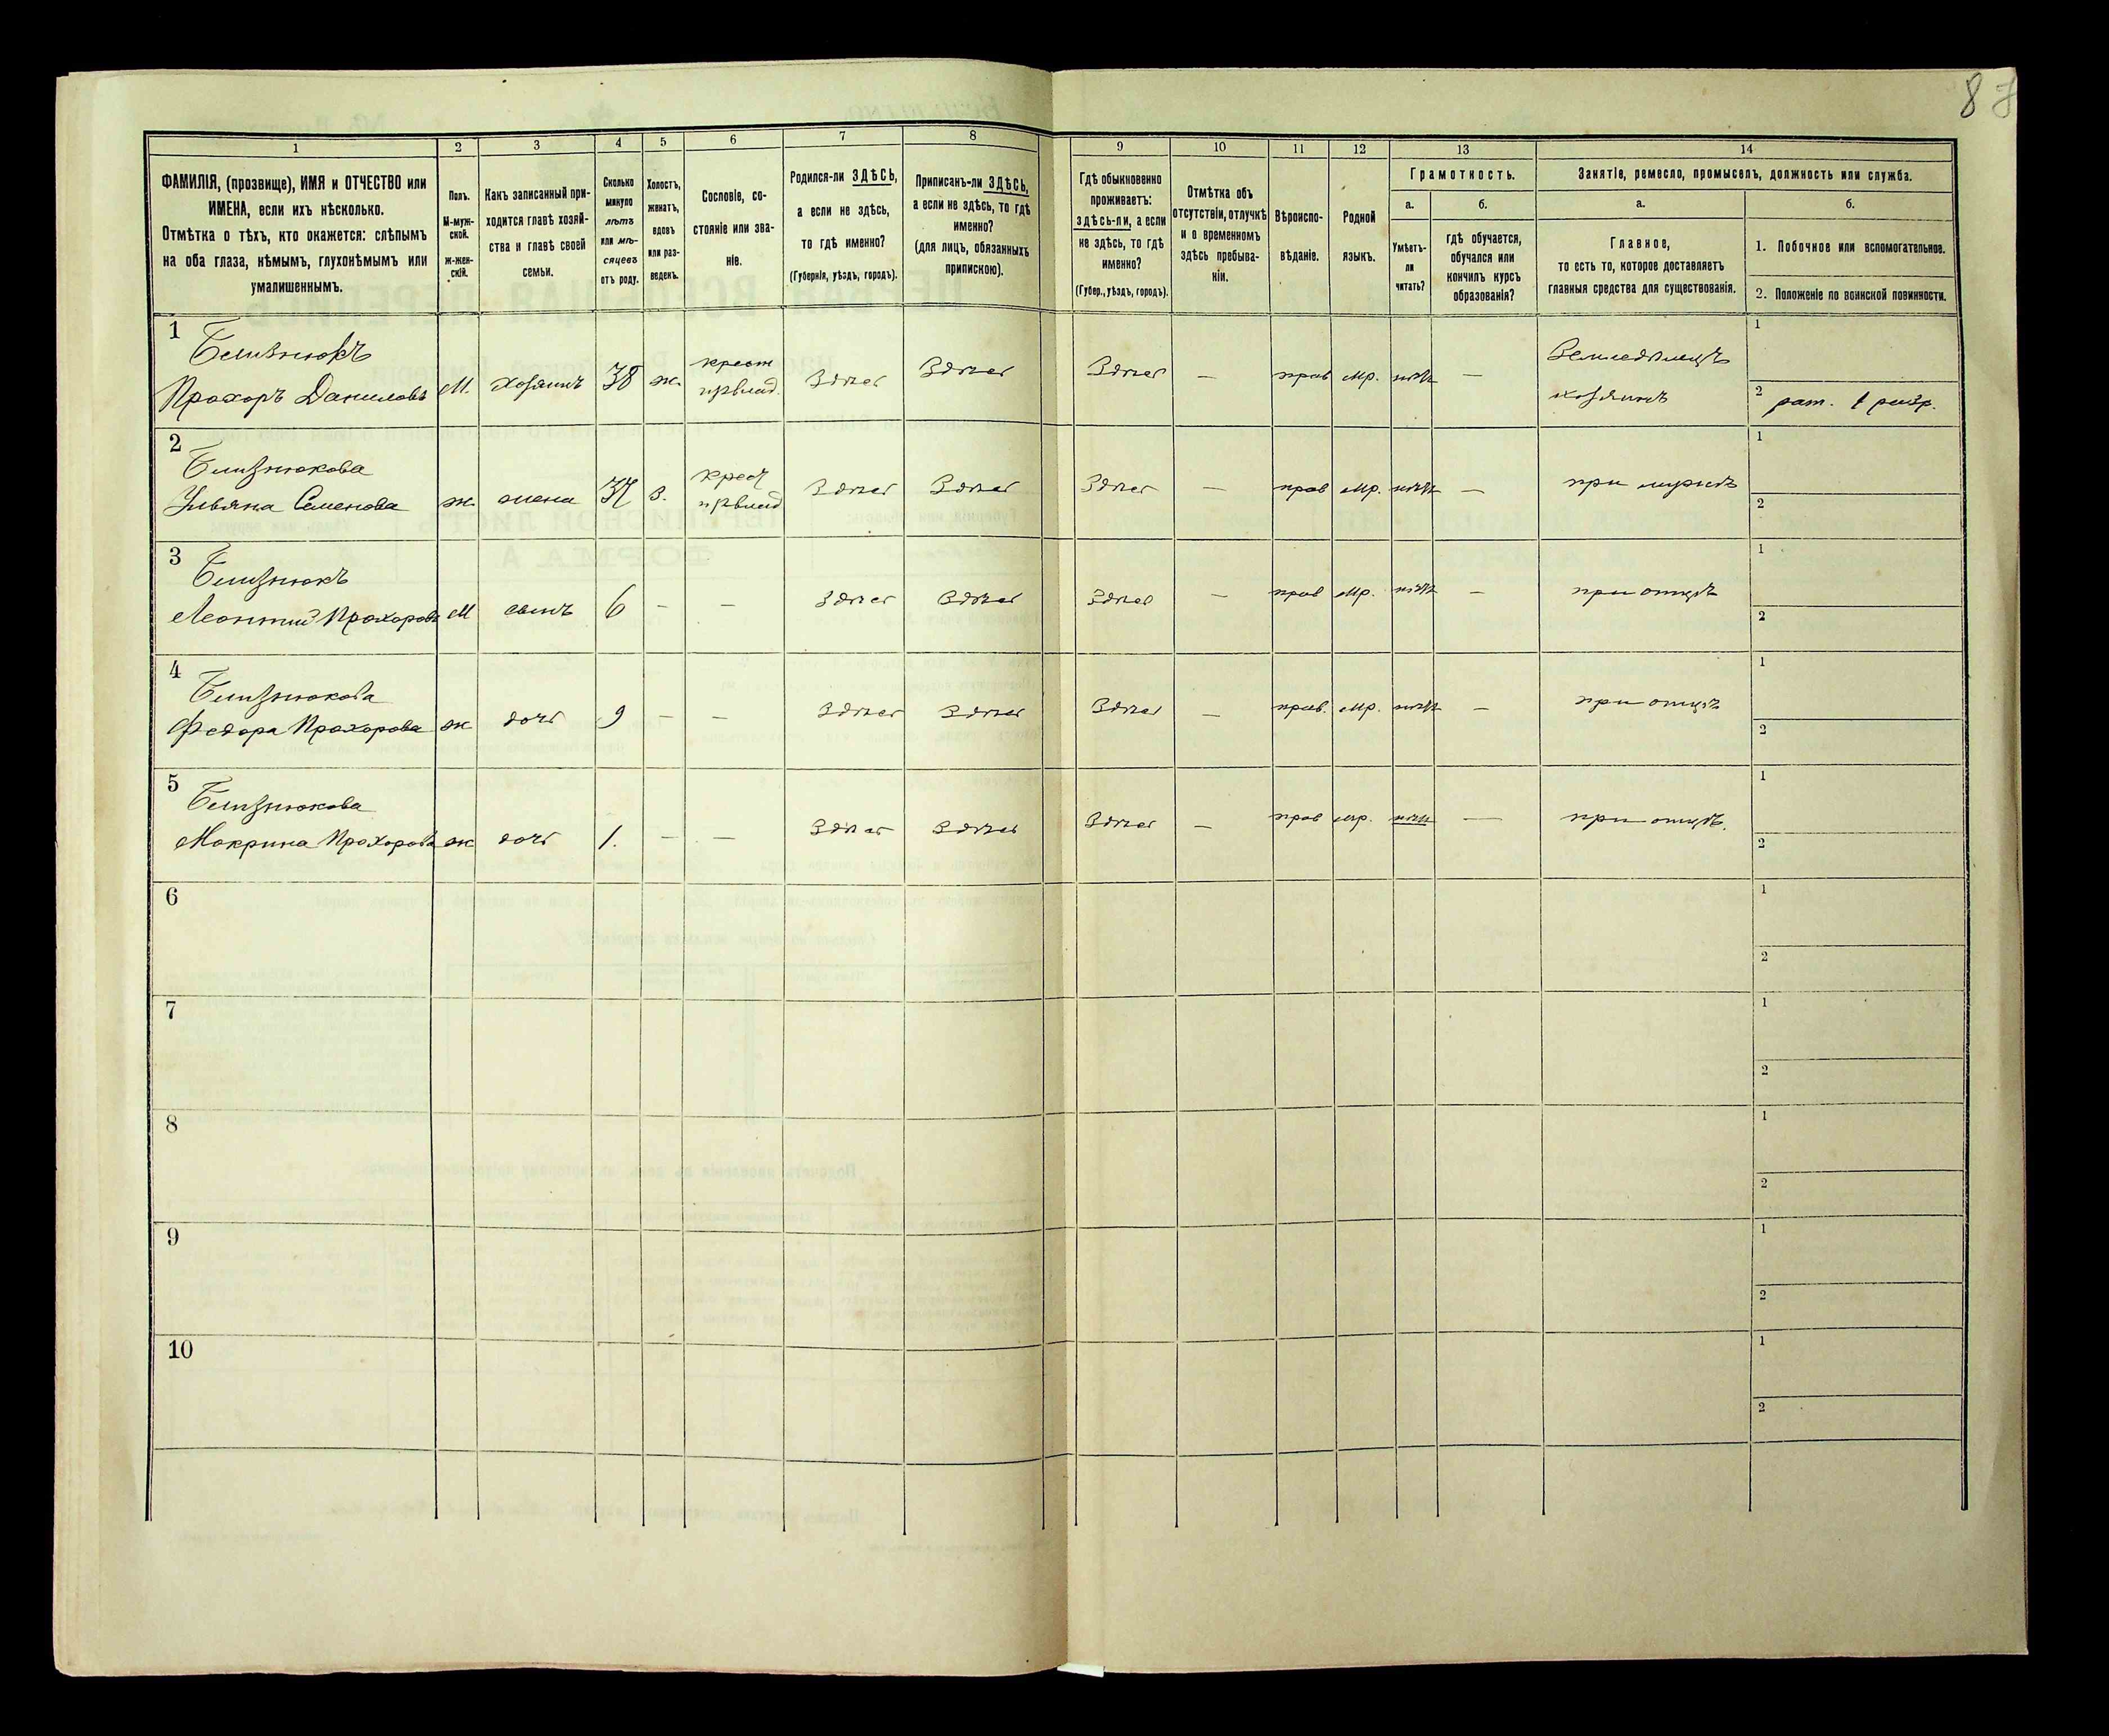 87
1 2 3 4 5 6 7 8 9 10 11 12 13 14
ФАМИЛІЯ, (прозвище), ИМЯ и ОТЧЕСТВО или
ИМЕНА, если ихъ нѣсколько.
Отмѣтка о тѣхъ, кто окажется: слѣпымъ
на оба глаза, нѣмымъ, глухонѣмымъ или
умалишеннымъ.
Полъ.
М-муж-
ской.
ж-жен-
скій.
Какъ записанный при-
ходится главѣ хозяй-
ства и главѣ своей
семьи.
Сколько
минуло
лѣтъ
или мѣ-
сяцевъ
отъ роду.
Холостъ,
женатъ,
вдовъ
или раз-
веденъ.
Сословіе, со-
стояніе или зва-
ніе.
Родился-ли ЗДѢСЬ,
а если не здѣсь,
то гдѣ именно?
(Губернія, уѣздъ, городъ).
Приписанъ-ли ЗДѢСЬ,
а если не здѣсь, то гдѣ
именно?
(для лицъ, обязанныхъ
припискою).
Гдѣ обыкновенно
проживаетъ:
здѣсь-ли, а если
не здѣсь, то гдѣ
именно?
(Губер., уѣздъ, городъ).
Отмѣтка объ
отсутствіи, отлучкѣ
и о временномъ
здѣсь пребыва-
ніи.
Вѣроиспо-
вѣданіе.
Родной
языкъ.
Грамотность.
а.
Умѣетъ-
ли
читать?
б.
гдѣ обучается,
обучался или
кончилъ курсъ
образованія?
Занятіе, ремесло, промыселъ, должность или служба.
а.
Главное,
то есть то, которое доставляетъ
главныя средства для существованія.
б.
1. Побочное или вспомогательное.
2. Положеніе по воинской повинности.
1
Близнюкъ
Прохоръ Даниловъ М. хозяинъ 38 ж. крест Здѣсь Здѣсь Здѣсь — прав мр. нѣтъ — Земледѣлецъ
хозяинъ
1
2 рат. 1 разр.
2
Близнюкова
Ульяна Семенова ж жена 37 з. крест Здѣсь Здѣсь Здѣсь — прав мр. нѣтъ — при мужѣ
1
2
3
Близнюкъ
Леонтий Прохоровъ М сынъ 6 — — Здѣсь Здѣсь Здѣсь — прав мр. нѣтъ — при отцѣ
1
2
4
Близнюкова
Федора Прохорова ж дочь 9 — — Здѣсь Здѣсь Здѣсь — прав. мр. нѣтъ — при отцѣ
1
2
5
Близнюкова
Мокрина Прохорова ж дочь 1. — — Здѣсь Здѣсь Здѣсь — прав мр. нѣтъ — при отцѣ.
1
2
6
1
2
7
1
2
8
1
2
9
1
2
10
1
2